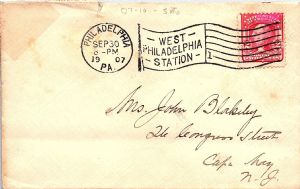 PHILADELPHIA
SEP 30
6-PM
19 07
PA.
WEST
PHILADELPHIA
STATION
1
Mrs. John Blakeley
26 Congress Street
Cape May
N.J.